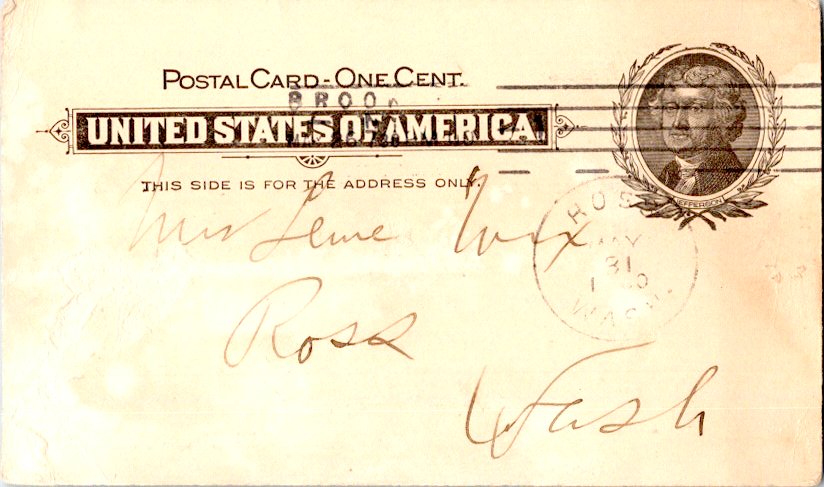 POSTAL CARD - ONE CENT.
BROO
UNITED STATES OF AMERICA.
THIS SIDE IS FOR THE ADDRESS ONLY.
JEFFERSON
ROSS
MAY
31
WASH.
Mrs Wix
Ross
Wash